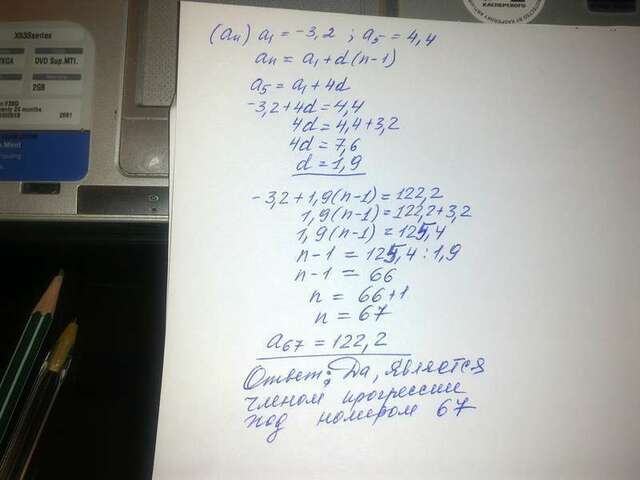 КАСПЕРСКОГО
X53Series
DVD Sup.MTI.
2GB
2861
(an) a₁ = -3,2 ; a₅ = 4,4
an = a₁ + d(n-1)
a₅ = a₁ + 4d
-3,2 + 4d = 4,4
4d = 4,4 + 3,2
4d = 7,6
d = 1,9
-3,2 + 1,9(n-1) = 122,2
1,9(n-1) = 122,2 + 3,2
1,9(n-1) = 125,4
n-1 = 125,4 : 1,9
n-1 = 66
n = 66 + 1
n = 67
a₆₇ = 122,2
Ответ: Да, является
членом прогрессии
под номером 67